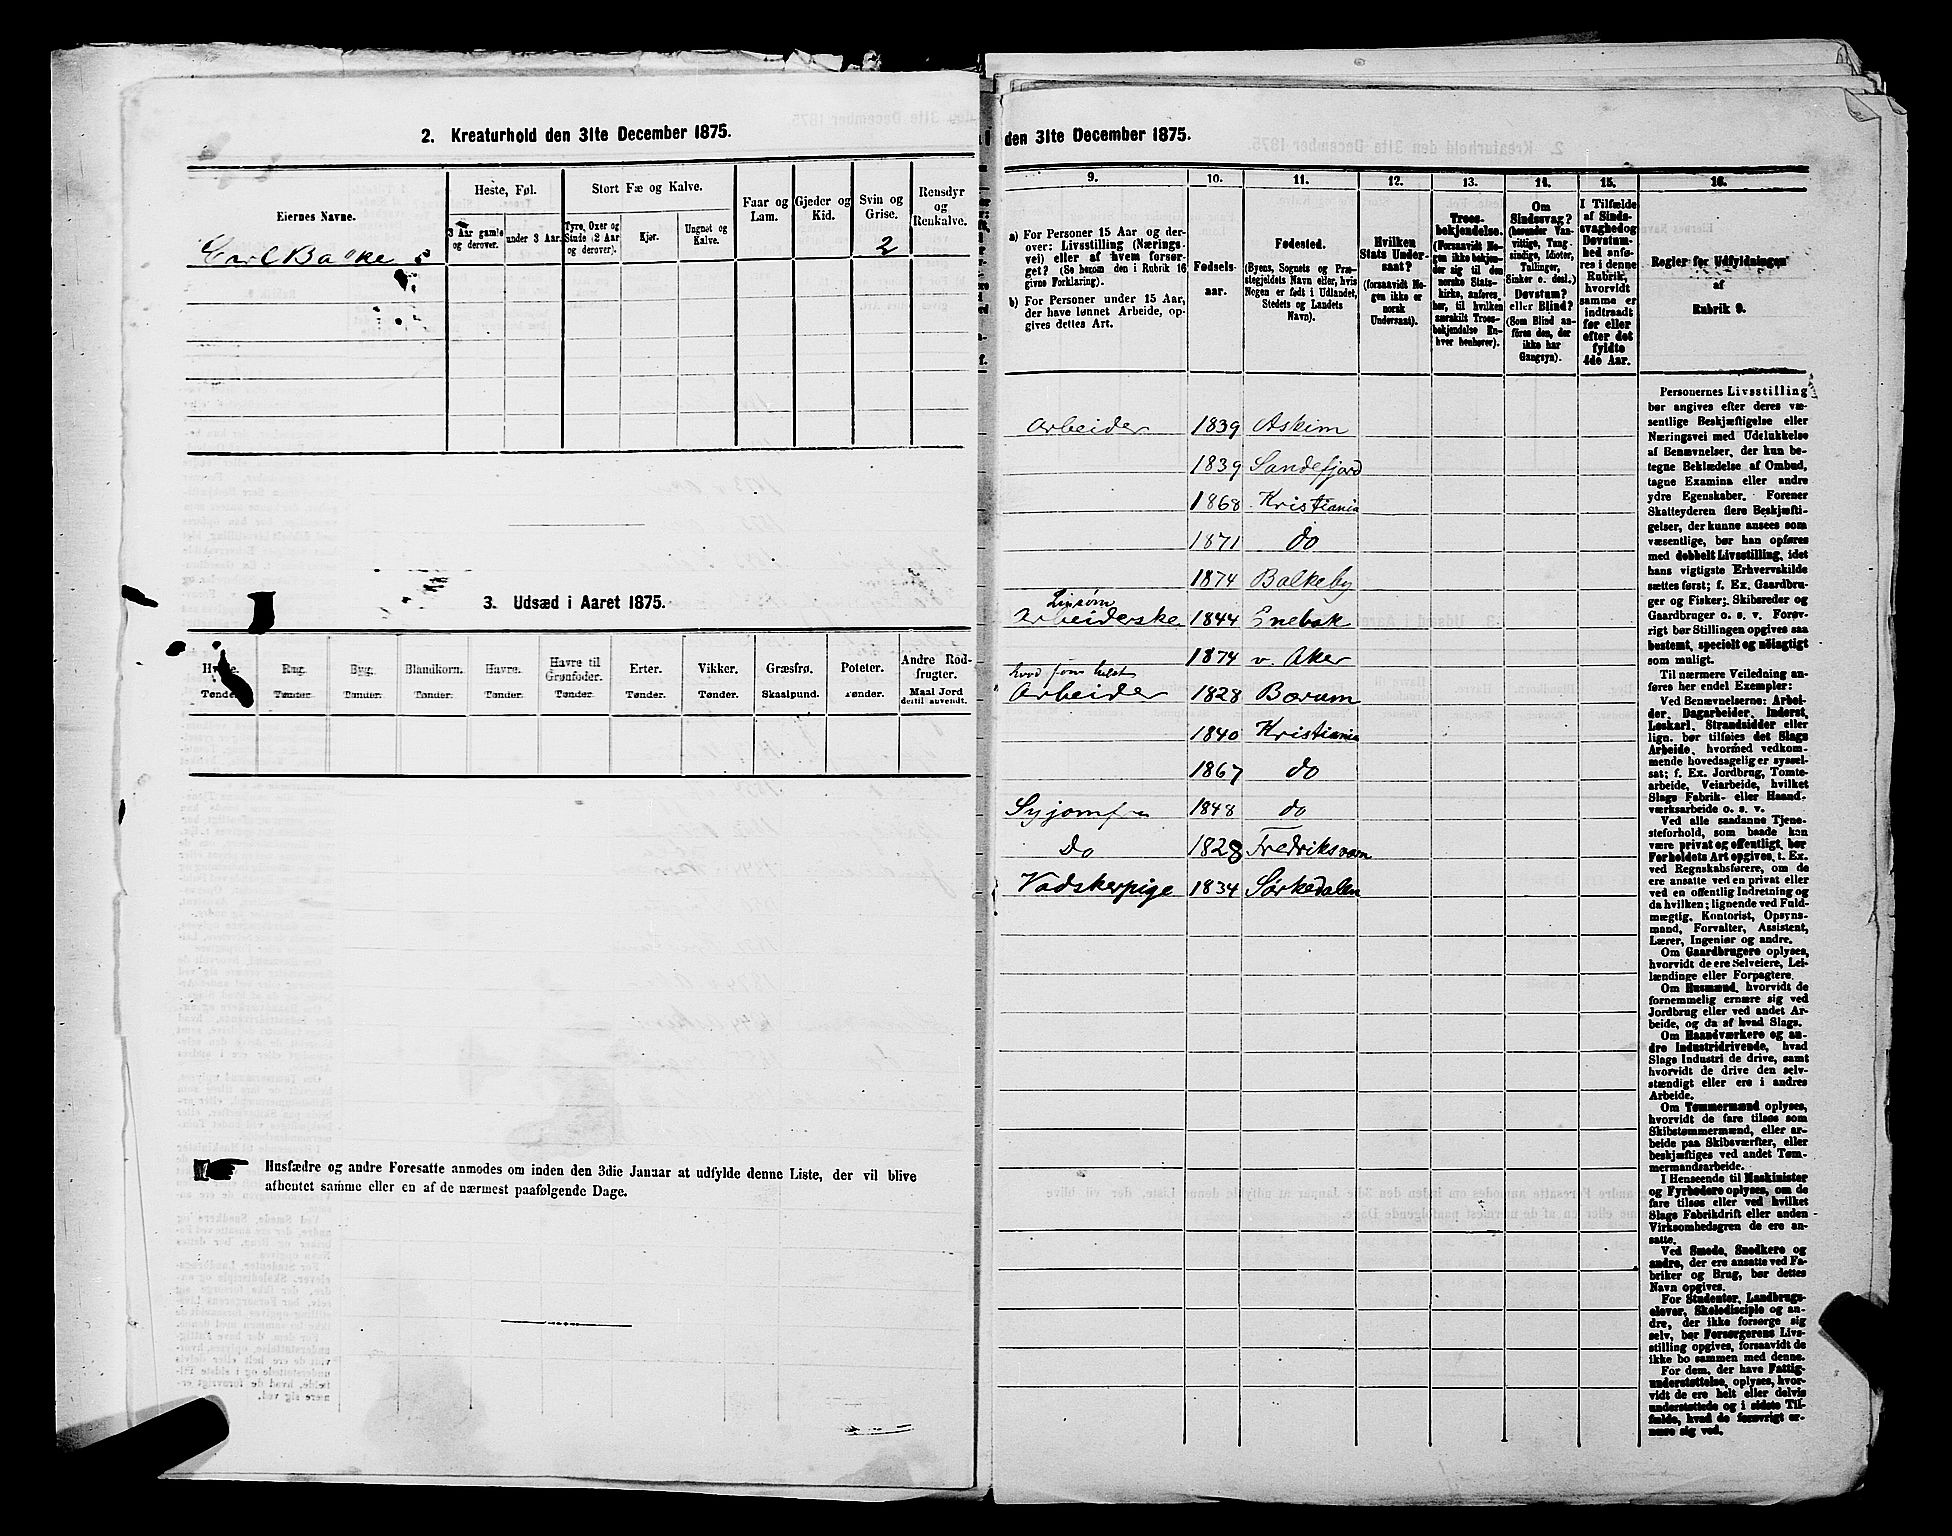 2. Kreaturhold den 31te December 1875.
Eiernes Navne.
Heste, Føl.
3 Aar gamle og derover.
under 3 Aar.
Stort Fæ og Kalve.
Tyre, Oxer og Stude (2 Aar og derover).
Kjør.
Ungnøt og Kalve.
Faar og Lam.
Gjeder og Kid.
Svin og Grise.
Rensdyr og Renkalve.
Carl Balke 2
3. Udsæd i Aaret 1875.
Hvede. Rug. Byg. Blandkorn. Havre. Havre til Grønfoder. Erter. Vikker. Græsfrø. Poteter. Andre Rodfrugter.
Tønder. Tønder. Tønder. Tønder. Tønder. Tønder. Tønder. Tønder. Skaalpund. Tønder. Maal Jord dertil anvendt.
Husfædre og andre Foresatte anmodes om inden den 3die Januar at udfylde denne Liste, der vil blive
afhentet samme eller en af de nærmest paafølgende Dage.
den 31te December 1875.
9. 10. 11. 12. 13. 14. 15. 16.
a) For Personer 15 Aar og der-
over: Livsstilling (Nærings-
vei) eller af hvem forsør-
get? (Se herom den i Rubrik 16
givne Forklaring).
b) For Personer under 15 Aar,
der have lønnet Arbeide, op-
gives dettes Art.
Fødsels-
aar.
Fødested.
(Byens, Sognets og Præ-
stegjeldets Navn eller, hvis
Nogen er født i Udlandet,
Stedets og Landets
Navn).
Hvilken
Stats Under-
saat?
(forsaavidt No-
gen ikke er
norsk
Undersaat).
Troes-
bekjendelse.
(Forsaavidt No-
gen ikke bekjen-
der sig til den
norske Stats-
kirke, anføres
her, til hvilken
særskilt Troes-
bekjendelse En-
hver henhører).
Om
Sindssvag?
(herunder Van-
vittige, Tung-
sindige, Idioter,
Tullinger,
Sinker o. desl.)
Døvstum?
eller Blind?
(Som Blind an-
føres den, der
ikke har
Gangsyn).
I Tilfælde
af Sinds-
svaghed og
Døvstum-
hed anfø-
res i denne
Rubrik,
hvorvidt
samme er
indtraadt
før eller
efter det
fyldte
4de Aar.
Regler for Udfyldningen
af
Rubrik 9.
Arbeider 1839 Askim
1839 Sandefjord
1868 Kristiania
1871 do
1874 Balkeby
Linsøm
Arbeiderske 1844 Enebak
1874 v. Aker
hvad som helst
Arbeider 1828 Bærum
1840 Kristiania
1867 do
Syjomfru 1848 do
Do 1828 Fredriksværn
Vadskerpige 1834 Sørkedalen
Personernes Livsstilling
bør angives efter deres væ-
sentlige Beskjæftigelse eller
Næringsvei med Udelukkelse
af Benævnelser, der kun be-
tegne Beklædelse af Ombud,
tagne Examina eller andre
ydre Egenskaber. Forener
Skatteyderen flere Beskjæfti-
gelser, der kunne ansees som
væsentlige, bør han opføres
med dobbelt Livsstilling, idet
hans vigtigste Erhvervskilde
sættes først; f. Ex. Gaardbru-
ger og Fisker; Skibsreder og
Gaardbruger o. s. v. Forøv-
rigt bør Stillingen opgives saa
bestemt, specielt og nøiagtigt
som muligt.
Til nærmere Veiledning an-
føres her endel Exempler:
Ved Benævnelserne: Arbei-
der, Dagarbeider, Inderst,
Løskarl, Strandsidder eller
lign. bør tilføies det Slags
Arbeide, hvormed vedkom-
mende hovedsagelig er syssel-
sat; f. Ex. Jordbrug, Tomte-
arbeide, Veiarbeide, hvilket
Slags Fabrik- eller Haand-
værksarbeide o. s. v.
Ved alle saadanne Tjene-
steforhold, som baade kan
være privat og offentligt, bør
Forholdets Art opgives, t. Ex.
ved Regnskabsførere, om de
ere ansatte ved en privat eller
ved en offentlig Indretning og
da hvilken; lignende ved Fuld-
mægtig, Kontorist, Opsyns-
mand, Forvalter, Assistent,
Lærer, Ingeniør og andre.
Om Gaardbrugere oplyses,
hvorvidt de ere Selveiere, Lei-
lændinge eller Forpagtere.
Om Husmænd, hvorvidt de
fornemmelig ernære sig ved
Jordbrug eller ved andet Ar-
beide, og da af hvad Slags.
Om Haandværkere og an-
dre Industridrivende, hvad
Slags Industri de drive, samt
hvorvidt de drive den selv-
stændigt eller ere i andres
Arbeide.
Om Tømmermænd oplyses,
hvorvidt de fare tilsøs som
Skibstømmermænd, eller ar-
beide paa Skibsværfter, eller
beskjæftiges ved andet Tøm-
mermandsarbeide.
I Henseende til Maskinister
og Fyrbødere oplyses, om de
fare tilsøs eller ved hvilket
Slags Fabrikdrift eller anden
Virksomhedsgren de ere an-
satte.
Ved Smede, Snedkere og
andre, der ere ansatte ved Fa-
briker og Brug, bør dettes
Navn opgives.
For Studenter, Landbrugs-
elever, Skoledisciple og an-
dre, der ikke forsørge sig
selv, bør Forsørgerens Livs-
stilling opgives, forsaavidt de
ikke bo sammen med denne.
For dem, der have Fattig-
understøttelse, oplyses, hvor-
vidt de ere helt eller delvis
understøttede og i sidste Til-
fælde, hvad de forøvrigt er-
nære sig ved.